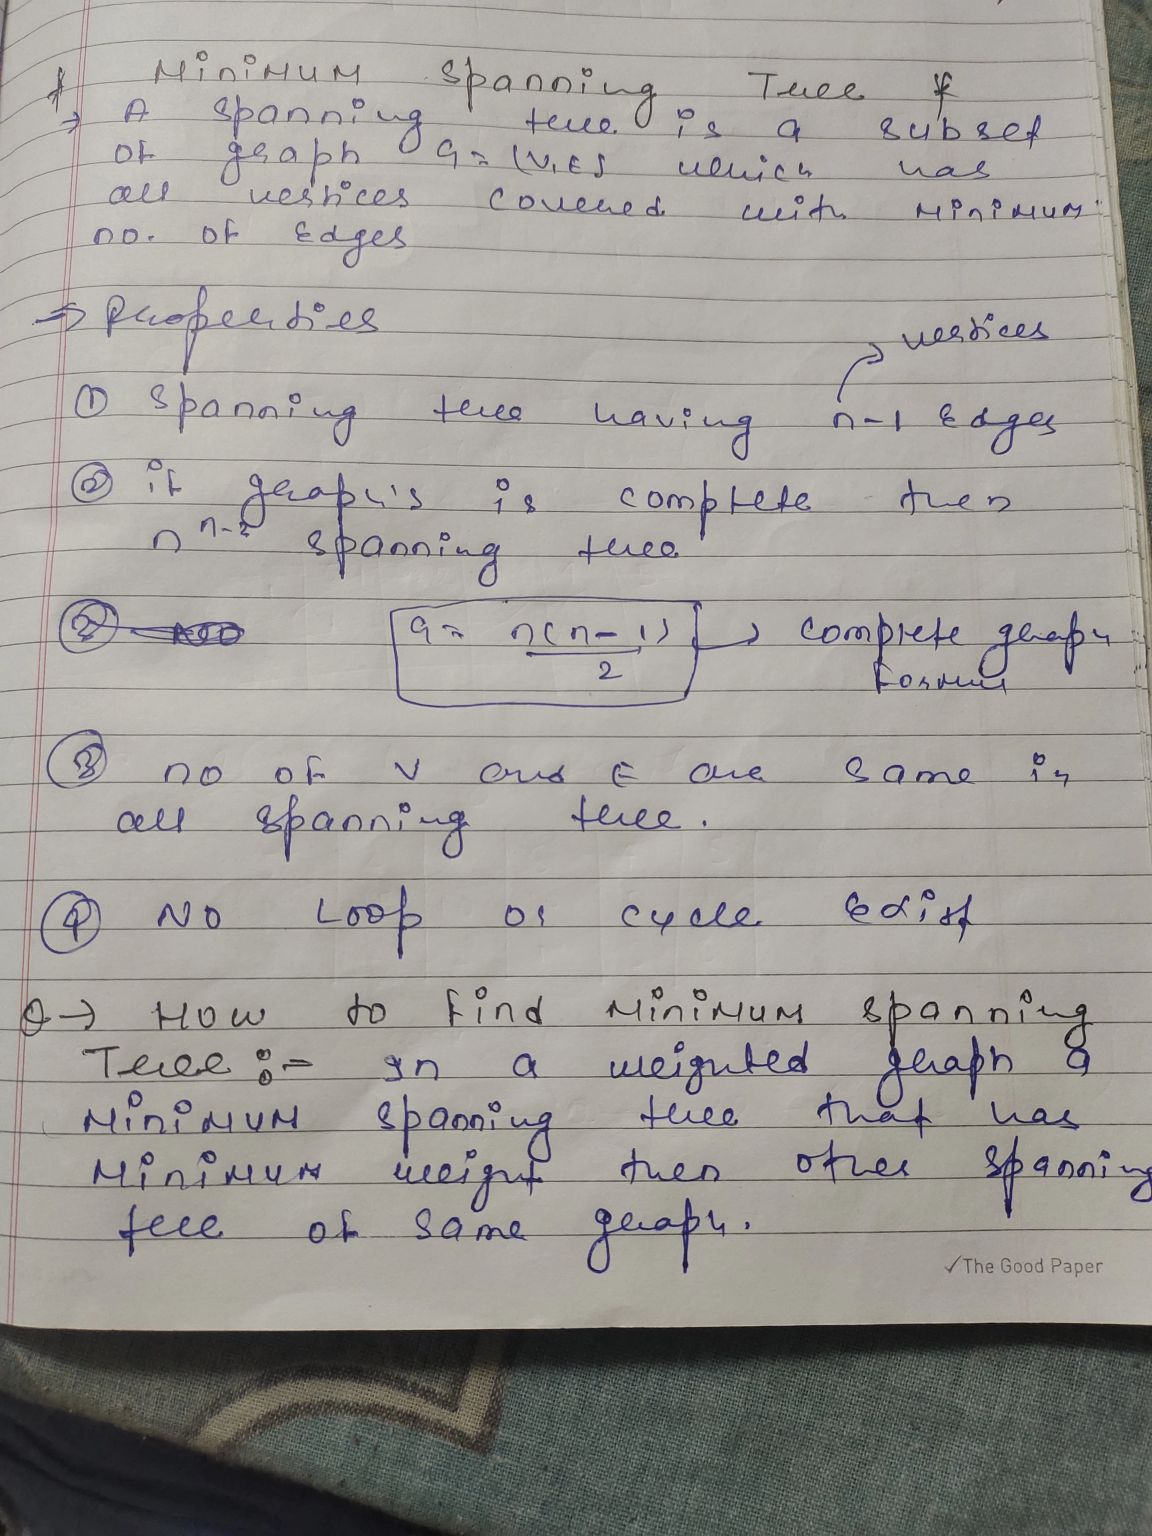 * Minimum Spanning Tree *
→ A spanning tree is a subset
of graph G = (V,E) which has
all vertices covered with minimum
no. of Edges
⇒ Properties
→ vertices
① Spanning tree having n-1 Edges
② if graph's is complete then
n^(n-2) spanning tree
G = n(n-1)/2 → complete graph
③ no of V and E are same in
all spanning tree.
④ No Loop or cycle Exist
Q → How to find Minimum Spanning
Tree :- In a weighted graph a
Minimum spanning tree that has
Minimum weight then other spanning
tree of same graph.
✓The Good Paper